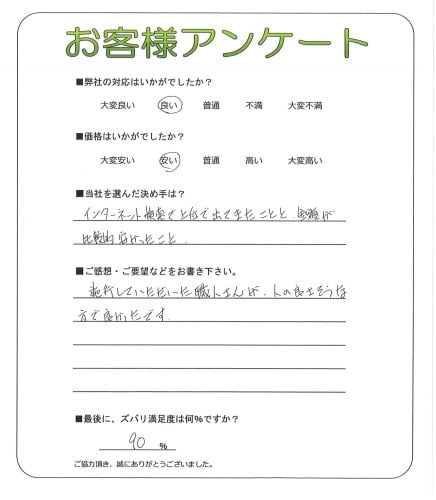 お客様アンケート
■弊社の対応はいかがでしたか?
大変良い 良い 普通 不満 大変不満
■価格はいかがでしたか?
大変安い 安い 普通 高い 大変高い
■当社を選んだ決め手は?
インターネット検索で上位で出てきたことと、金額が
比較的安かったこと.
■ご感想・ご要望などをお書き下さい。
施行していただいた職人さんが、人の良さそうな
方で良かったです.
■最後に、ズバリ満足度は何%ですか?
90 %
ご協力頂き、誠にありがとうございました。